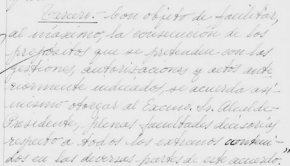 Tercero.- Con objeto de facilitar,
al máximo, la consecución de los
propósitos que se pretenden con las
gestiones, autorizaciones y actos ante-
riormente indicados, se acuerda asi-
mismo otorgar al Excmo. Sr. Alcalde-
Presidente, plenas facultades
respecto a todos los extremos conteni-
dos en las diversas partes de este acuerdo.